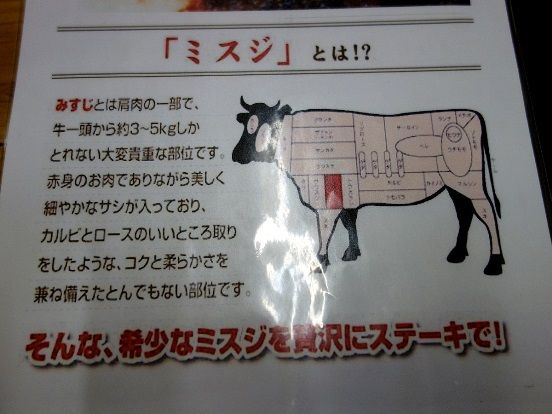 「ミスジ」とは!?
みすじとは肩肉の一部で、
牛一頭から約3~5kgしか
とれない大変貴重な部位です。
赤身のお肉でありながら美しく
細やかなサシが入っており、
カルビとロースのいいところ取り
をしたような、コクと柔らかさを
兼ね備えたとんでもない部位です。
サーロイン
ランプ
ヒレ
カルビ
そんな、希少なミスジを贅沢にステーキで!